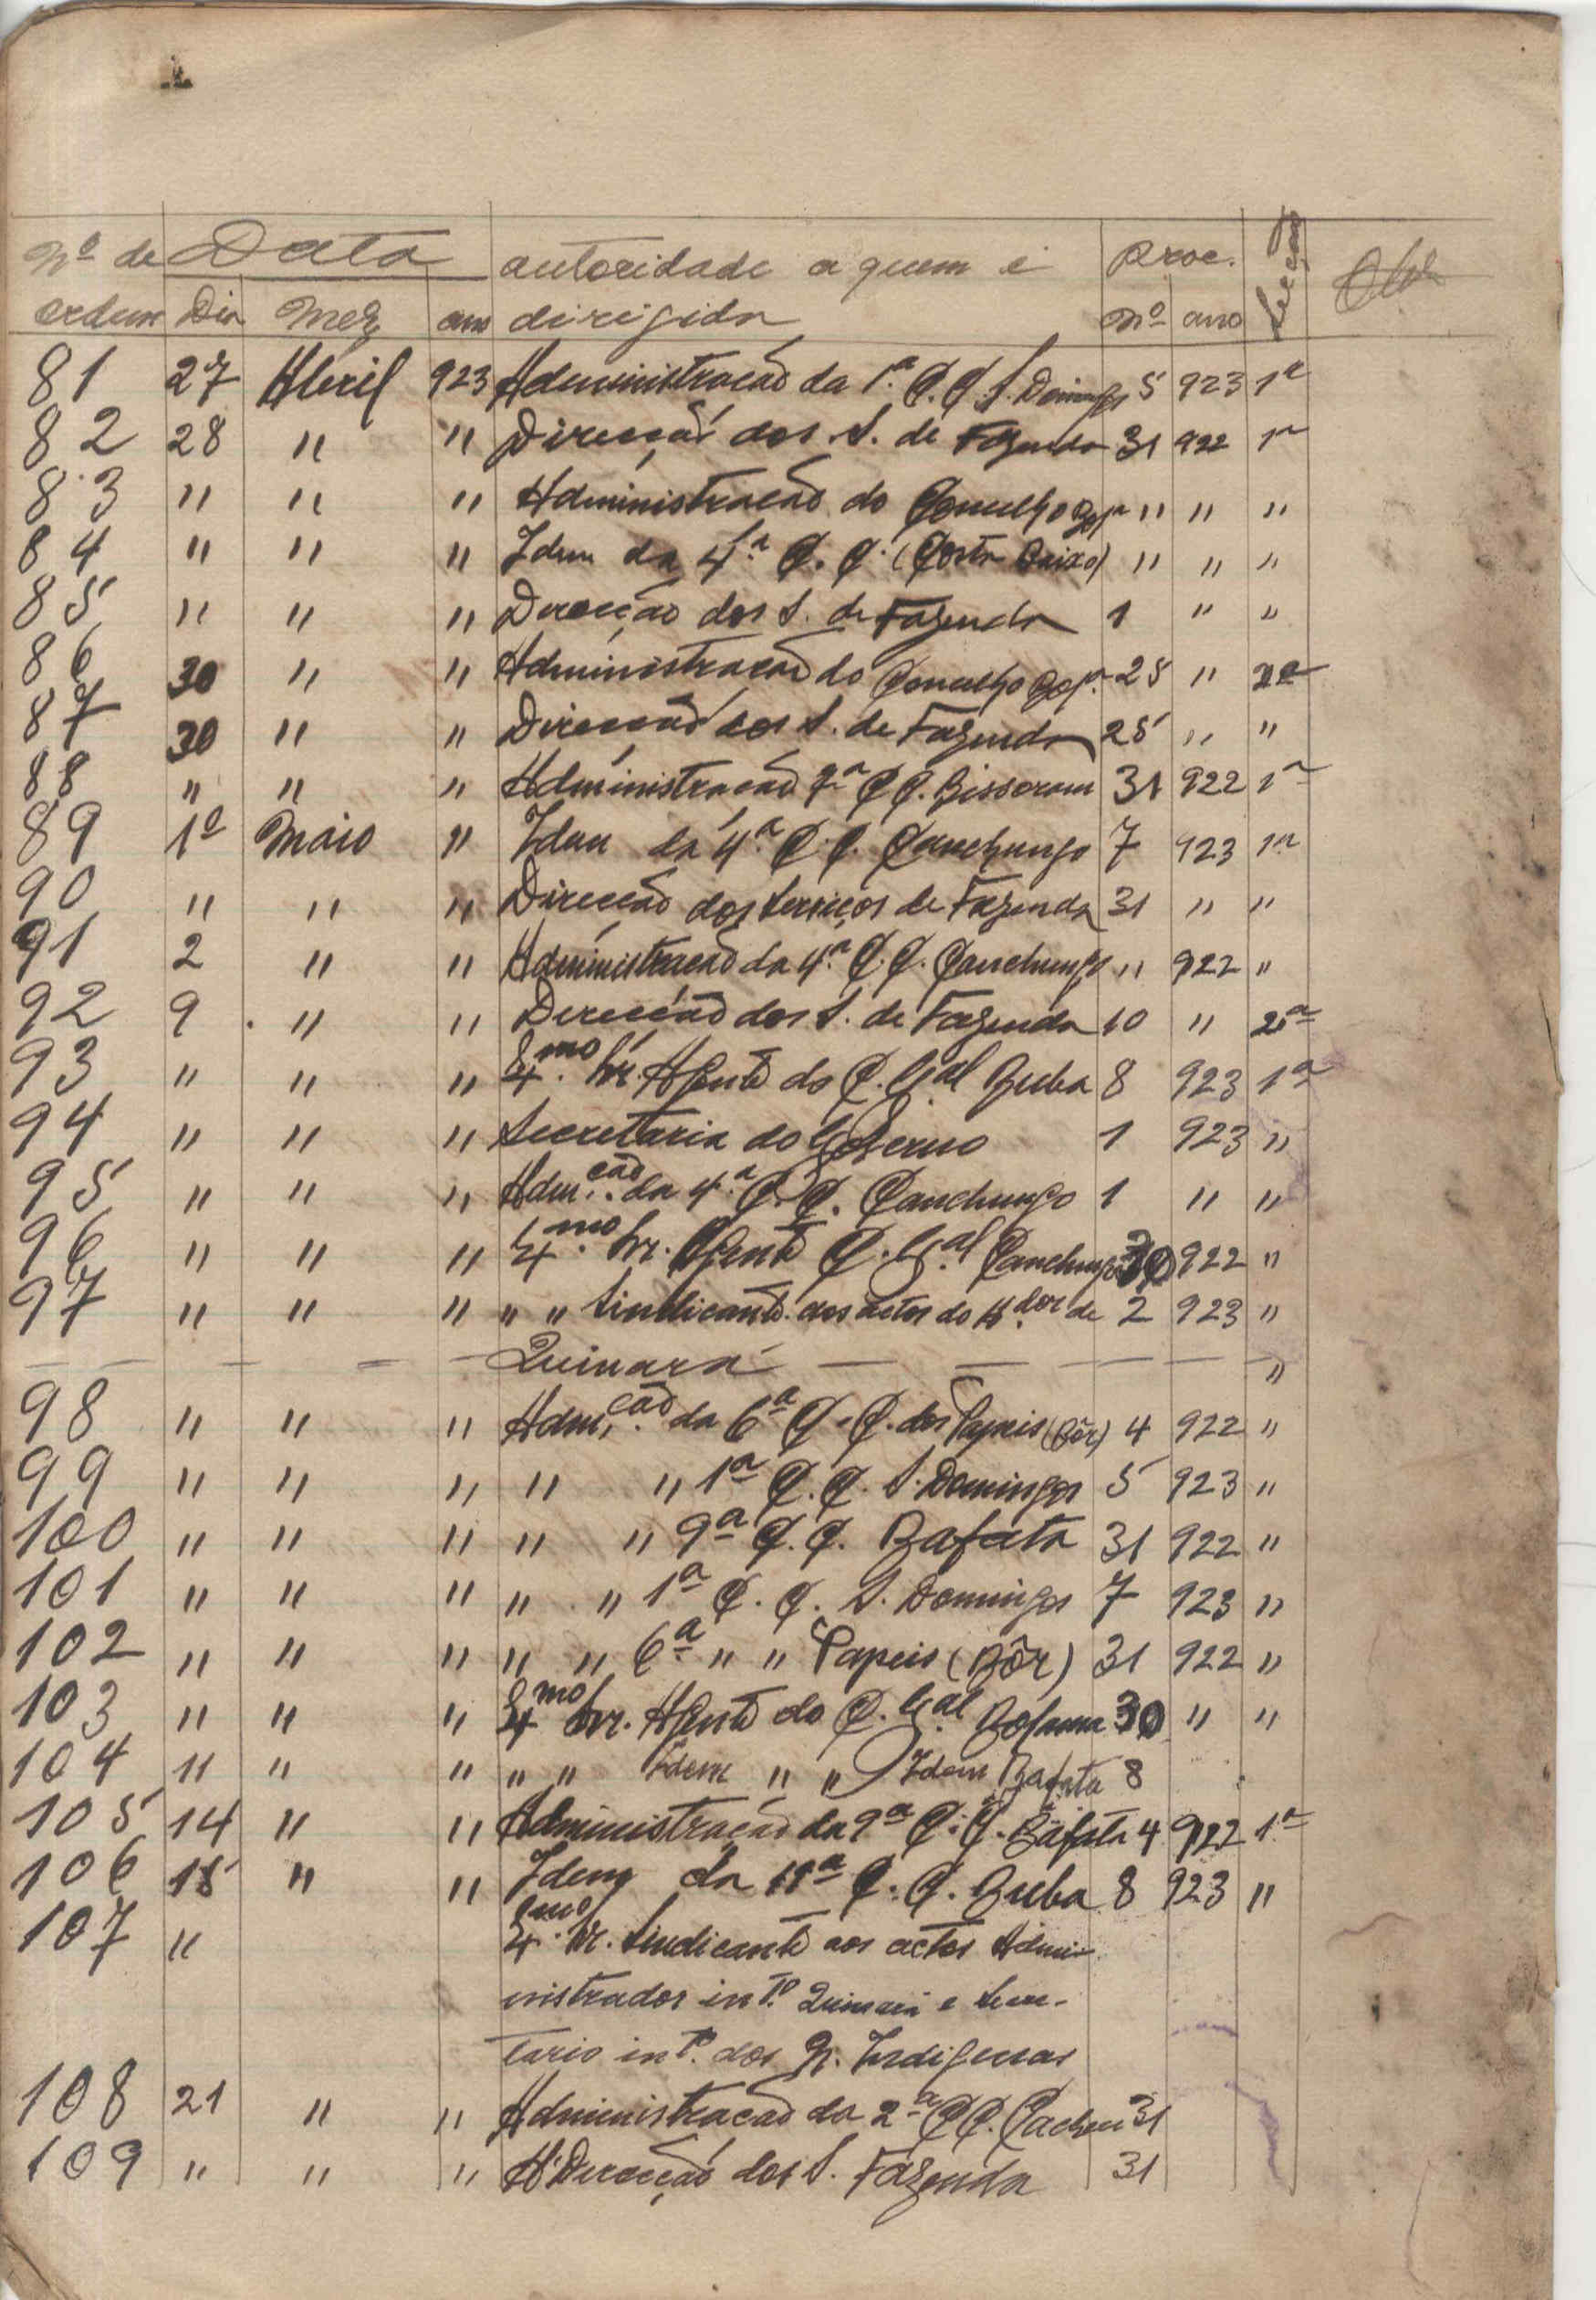 Nº de Data autoridade a quem é Proc. Secção Obs
ordem Dia Mez ano dirigida Nº ano
81 27 Abril 923 Administração da 1.ª C. C. S. Domingos 5 923 1ª
82 28 " " Direcção dos S. de Fazenda 31 922 1ª
83 " " " Administração do Concelho Bol.ª " " "
84 " " " Idem da 4.ª C. C. (Costa Baixo) " " "
85 " " " Direcção dos S. de Fazenda 1 " "
86 30 " " Administração do Concelho Bol.ª 25 " 2ª
87 30 " " Direcção dos S. de Fazenda 25 " "
88 " " " Administração 7ª C C. Bissoram 31 922 1ª
89 1º Maio " Idem da 4.ª C. C. Canchungo 7 923 1ª
90 " " " Direcção dos Serviços de Fazenda 31 " "
91 2 " " Administração da 4.ª C. C. Canchungo " 922 "
92 9 " " Direcção dos S. de Fazenda 10 " 2ª
93 " " " Ex.mo Sr. Agente do C. G.al Buba 8 923 1ª
94 " " " Secretaria do Governo 1 923 "
95 " " " Adm.ção da 4.ª C. C. Canchungo 1 " "
96 " " " Ex.mo Sr. Agente C. G.al Canchungo 30 922 "
97 " " " " " Sindicante dos actos do A.dor de 2 923 "
— — — — — Quinará — — — — "
98 " " " Adm.ção da 6ª C. C. dos Papeis (Bôr) 4 922 "
99 " " " " " 1ª C. C. S. Domingos 5 923 "
100 " " " " " 9ª C. C. Bafata 31 922 "
101 " " " " " 1ª C. C. S. Domingos 7 923 "
102 " " " " " 6ª " " Papeis (Bôr) 31 922 "
103 " " " Ex.mo Sr. Agente do C. G.al Bolama 30 " "
104 " " " " " Idem " " Idem Bafata 8
105 14 " " Administração da 9ª C. C. Bafata 4 922 1ª
106 15 " " Idem da 11ª C. C. Buba 8 923 "
107 " Ex.mo Sr. Sindicante aos actos Admi-
nistrador int.º Quinará e Secre-
tario int.º dos N. Indigenas
108 21 " " Administração da 2ª C C. Cacheu 31
109 " " " A Direcção dos S. Fazenda 31